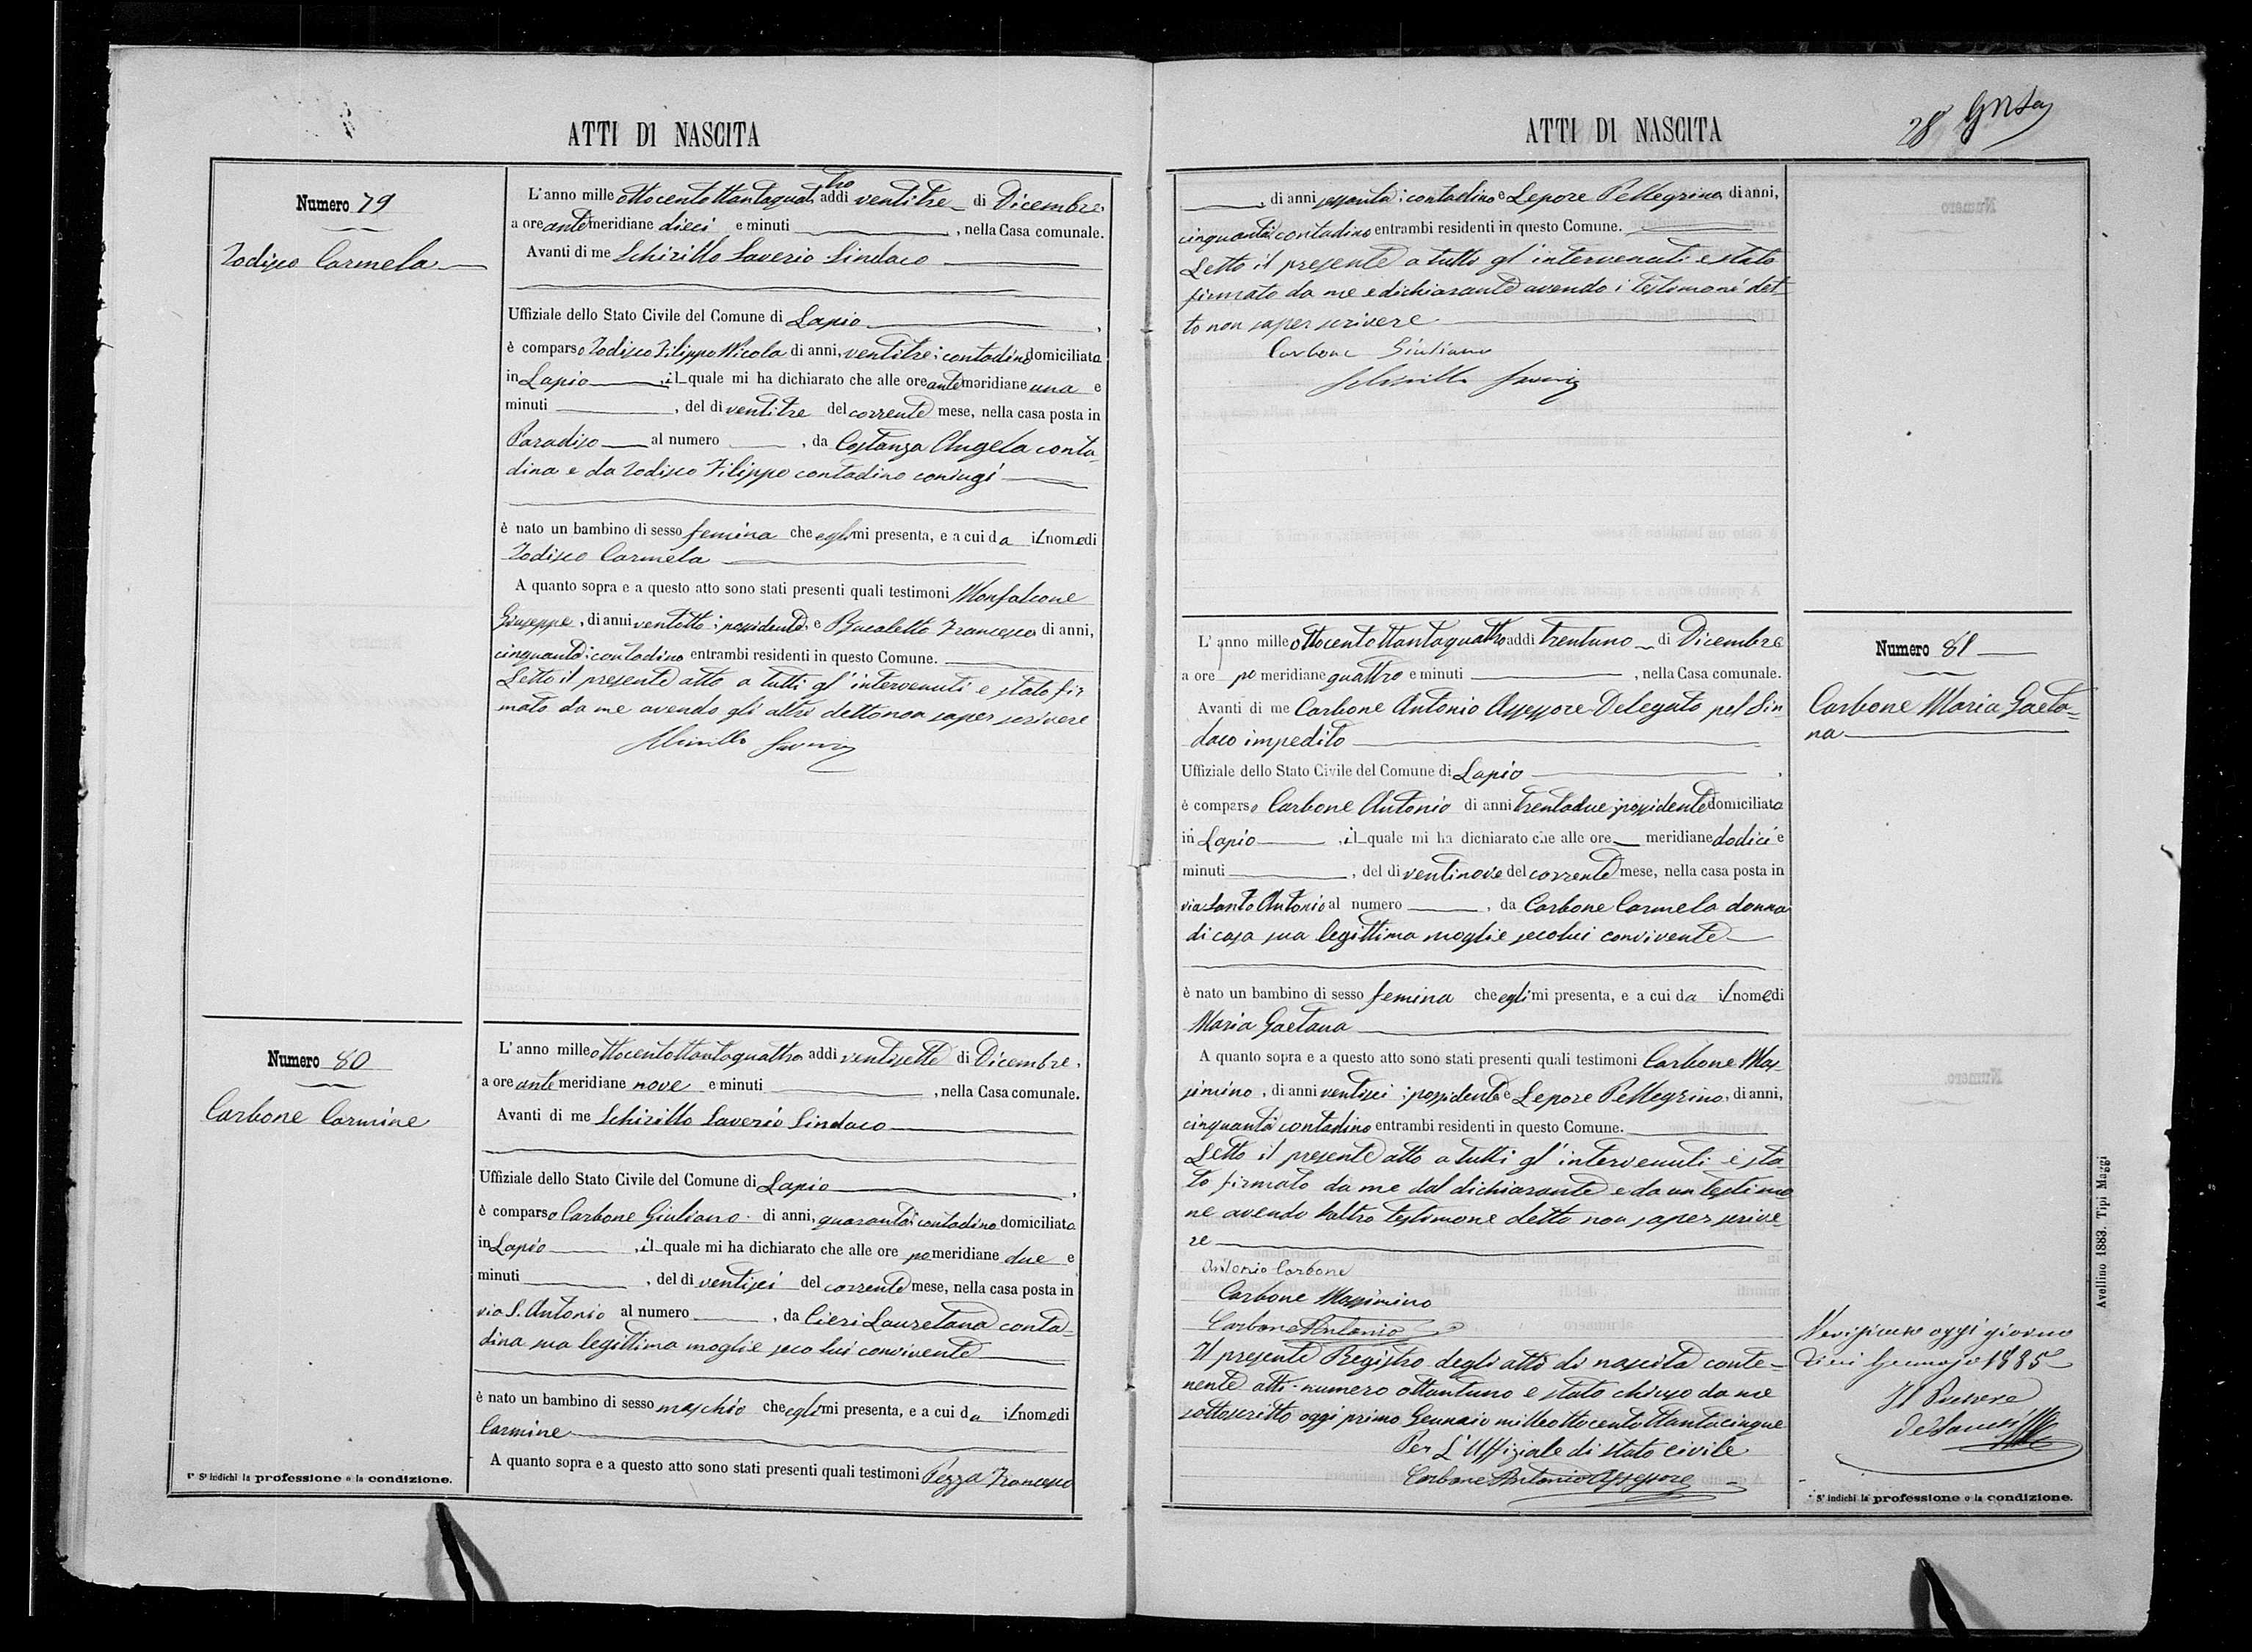 ATTI DI NASCITA
Numero 79
Zodisco Carmela
L'anno mille ottocentottantaquattro addi ventitre di Dicembre,
a ore antemeridiane dieci e minuti , nella Casa comunale.
Avanti di me Schirillo Saverio Sindaco
Uffiziale dello Stato Civile del Comune di Lapio ,
è comparso Zodisco Filippo Nicola di anni, ventitre; contadino domiciliato
in Lapio , il quale mi ha dichiarato che alle ore antemeridiane una e
minuti , del dì ventitre del corrente mese, nella casa posta in
Paradiso al numero , da Costanza Angela conta-
dina e da Zodisco Filippo contadino coniugi
è nato un bambino di sesso femina che egli mi presenta, e a cui da il nome di
Zodisco Carmela
A quanto sopra e a questo atto sono stati presenti quali testimoni Monfalcone
Giuseppe, di anni ventotto; possidente e Bucaletto Francesco di anni,
cinquanta; contadino entrambi residenti in questo Comune.
Letto il presente atto a tutti gl'intervenuti e stato fir
mato da me avendo gli altri detto non saper scrivere
Schirillo Saverio
Numero 80
Carbone Carmine
L'anno mille ottocentottantaquattro addi ventisette di Dicembre,
a ore antemeridiane nove e minuti , nella Casa comunale.
Avanti di me Schirillo Saverio Sindaco
Uffiziale dello Stato Civile del Comune di Lapio ,
è comparso Carbone Giuliano di anni, quaranta; contadino domiciliato
in Lapio , il quale mi ha dichiarato che alle ore pomeridiane due e
minuti , del dì ventisei del corrente mese, nella casa posta in
via S. Antonio al numero , da Cieri Lauretana conta-
dina sua legittima moglie seco lui convivente
è nato un bambino di sesso maschio che egli mi presenta, e a cui da il nome di
Carmine
A quanto sopra e a questo atto sono stati presenti quali testimoni Pezza Francesco
S' indichi la professione o la condizione.
ATTI DI NASCITA
28
, di anni sessanta; contadino e Lepore Pellegrino di anni,
cinquanta contadino entrambi residenti in questo Comune.
Letto il presente a tutti gl'intervenuti e stato
firmato da me e dichiarante avendo i testimoni det
to non saper scrivere
Carbone Giuliano
Schirillo Saverio
Numero 81
Carbone Maria Gaeta=
na
L'anno mille ottocentottantaquattro addi trentuno di Dicembre
a ore pomeridiane quattro e minuti , nella Casa comunale.
Avanti di me Carbone Antonio Assessore Delegato pel Sin
daco impedito
Uffiziale dello Stato Civile del Comune di Lapio ,
è comparso Carbone Antonio di anni trentadue; possidente domiciliato
in Lapio , il quale mi ha dichiarato che alle ore meridiane dodici e
minuti , del dì ventinove del corrente mese, nella casa posta in
via Santo Antonio al numero , da Carbone Carmela donna
di casa sua legittima moglie secolui convivente
è nato un bambino di sesso femina che egli mi presenta, e a cui da il nome di
Maria Gaetana
A quanto sopra e a questo atto sono stati presenti quali testimoni Carbone Mas-
simino, di anni ventisei; possidente e Lepore Pellegrino, di anni,
cinquanta contadino entrambi residenti in questo Comune.
Letto il presente atto a tutti gl'intervenuti è sta
to firmato da me dal dichiarante e da un testimo
ne avendo l'altro testimone detto non saper scrive-
re
Antonio Carbone
Carbone Massimino
Carbone Antonio
Il presente Registro degli atti di nascita conte=
nente atti numero ottantuno e stato chiuso da me
sottoscritto oggi primo Gennaio milleottocentottantacinque
Per L'Uffiziale di stato civile
Carbone Antonio Assessore
oggi giorno
dieci Gennajo 1885
Il Pretore
S' indichi la professione o la condizione.
Avellino 1883. Tipi Maggi